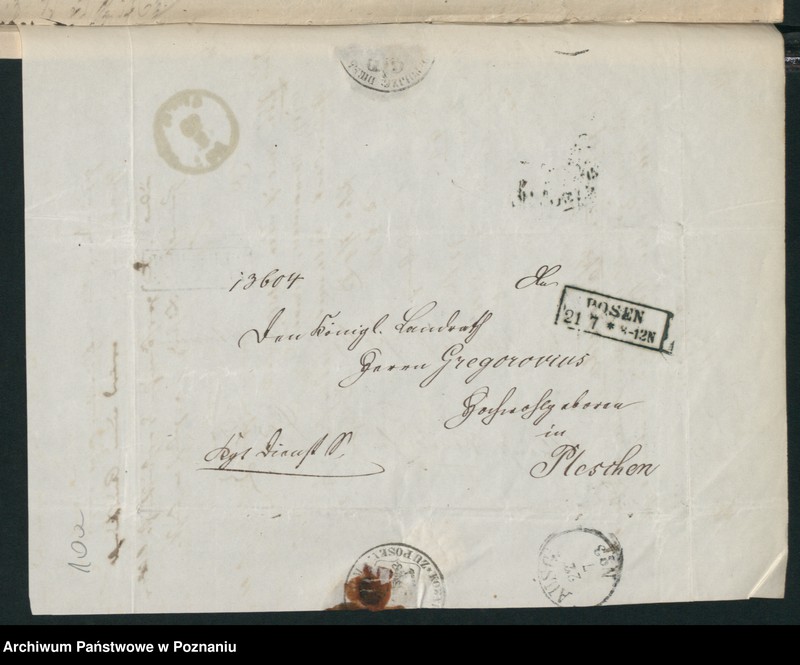 13604
An
POSEN
21 7 * 8-12N
Den Königl. Landrath
Herrn Gregorovius
Hochwohlgeboren
in
Kgl Dienst S.
Pleschen
10a
ZU POSEN
AUSG
22
7
N 3
Archiwum Państwowe w Poznaniu